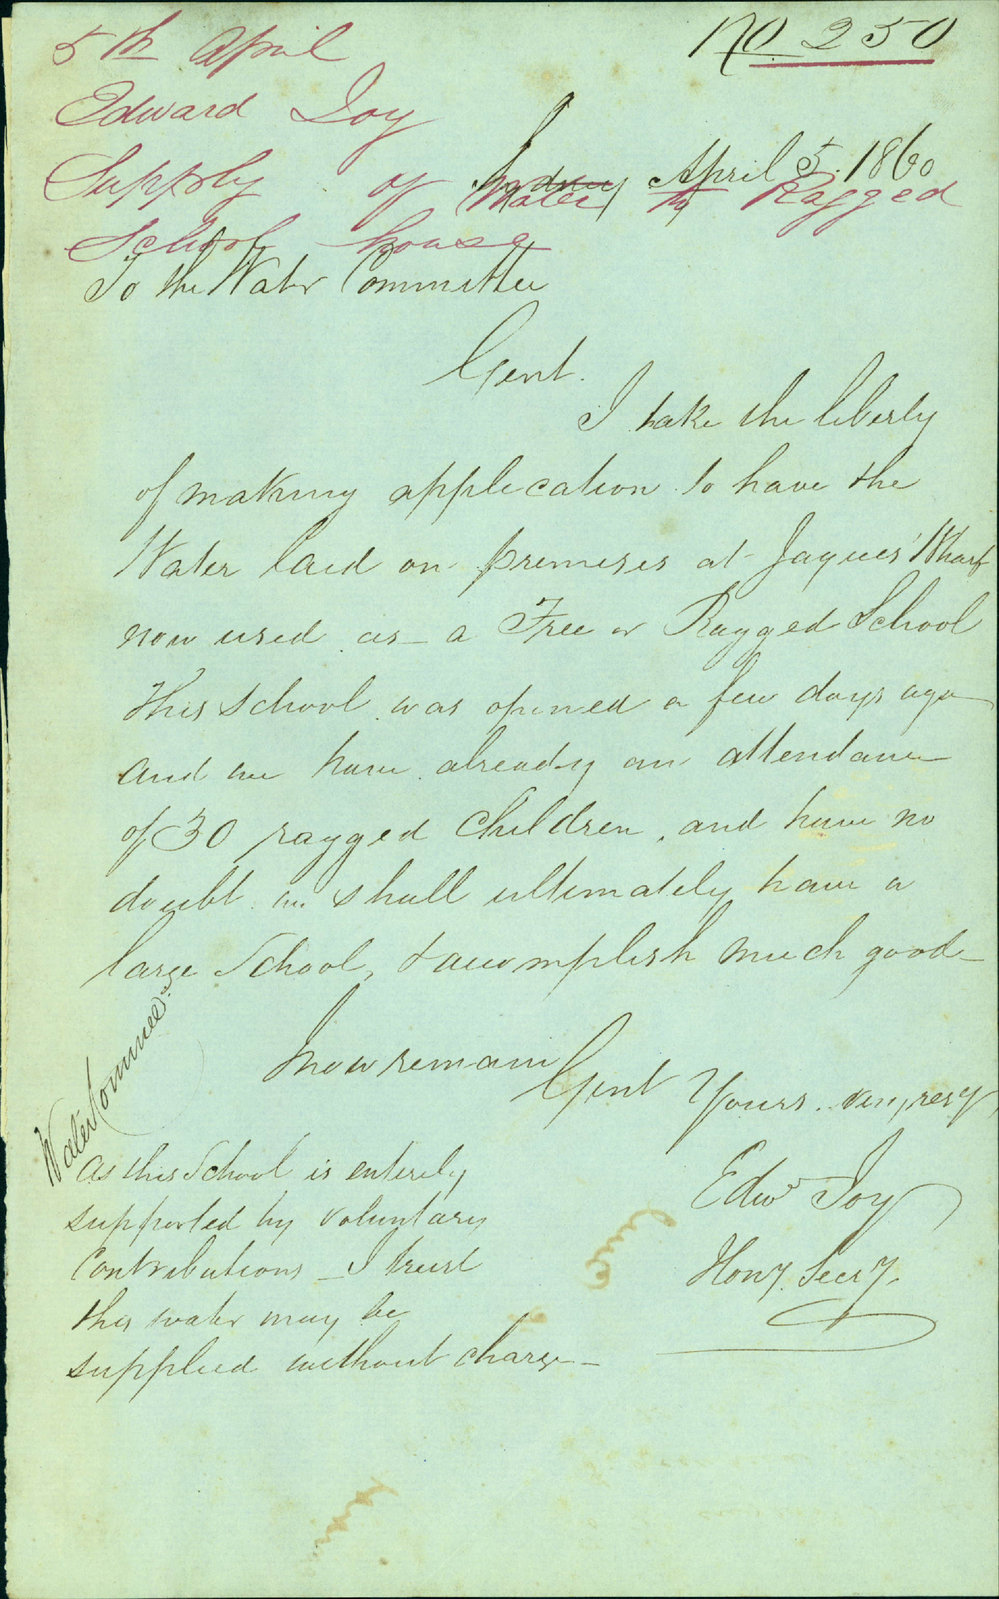 No 250
5th April
Edward Joy
Supply of Water to Ragged
School house
Sydney April 5. 1860
To the Water Committee
Gent.
I take the liberty
of making application to have the
Water laid on premises at Jaques' Wharf
now used as a Free or Ragged School
This School was opened a few days ago
and we have already an attendance
of 30 ragged children, and have no
doubt we shall ultimately have a
large School, & accomplish much good
I now remain
Gent Yours very resy
Edwd Joy
Hony. Secy.
Water Committee
As this School is entirely
supported by voluntary
contributions _ I trust
this water may be
supplied without charge _